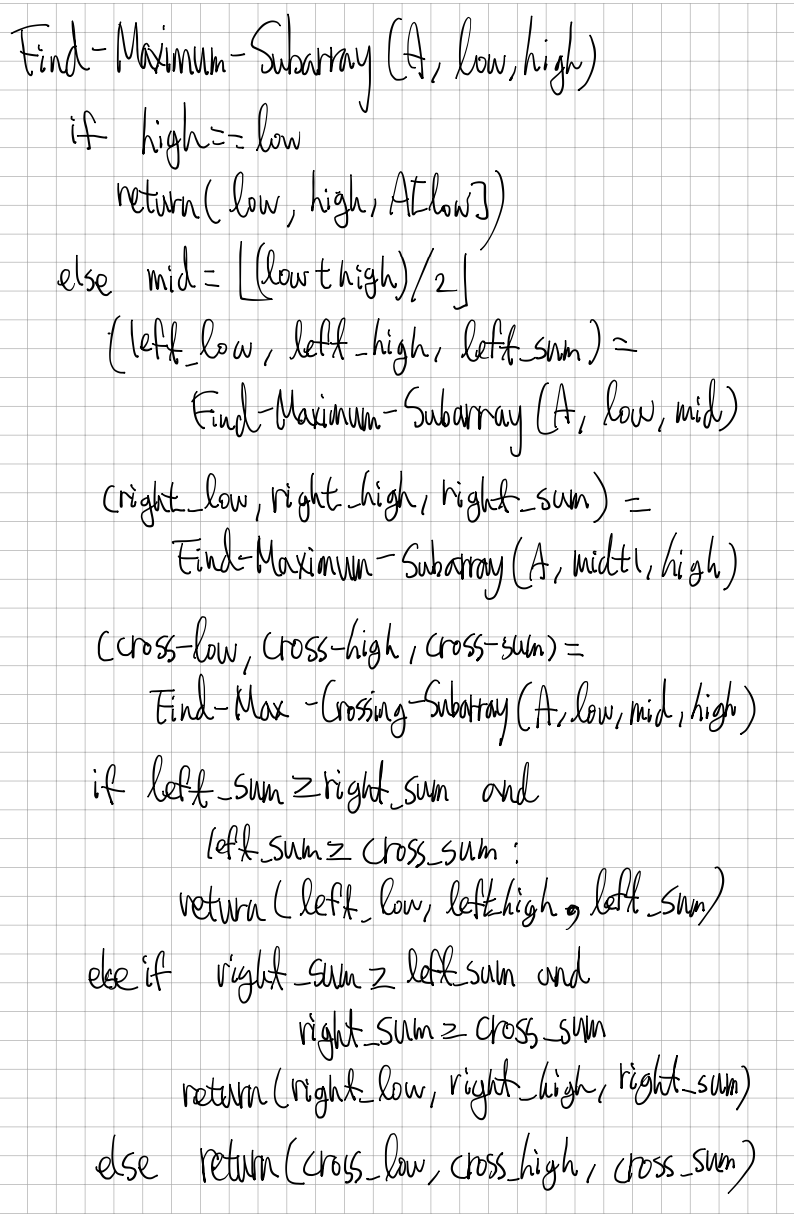 Find-Maximum-Subarray (A, low, high)
if high == low
return ( low, high, A[low])
else mid = ⌊(low + high)/2⌋
(left_low, left_high, left_sum) =
Find-Maximum-Subarray (A, low, mid)
(right_low, right_high, right_sum) =
Find-Maximum-Subarray (A, mid+1, high)
(cross-low, cross-high, cross-sum) =
Find-Max-Crossing-Subarray (A, low, mid, high)
if left_sum ≥ right_sum and
left_sum ≥ cross_sum :
return ( left_low, left_high, left_sum)
else if right_sum ≥ left_sum and
right_sum ≥ cross_sum
return (right_low, right_high, right_sum)
else return (cross_low, cross_high, cross_sum)